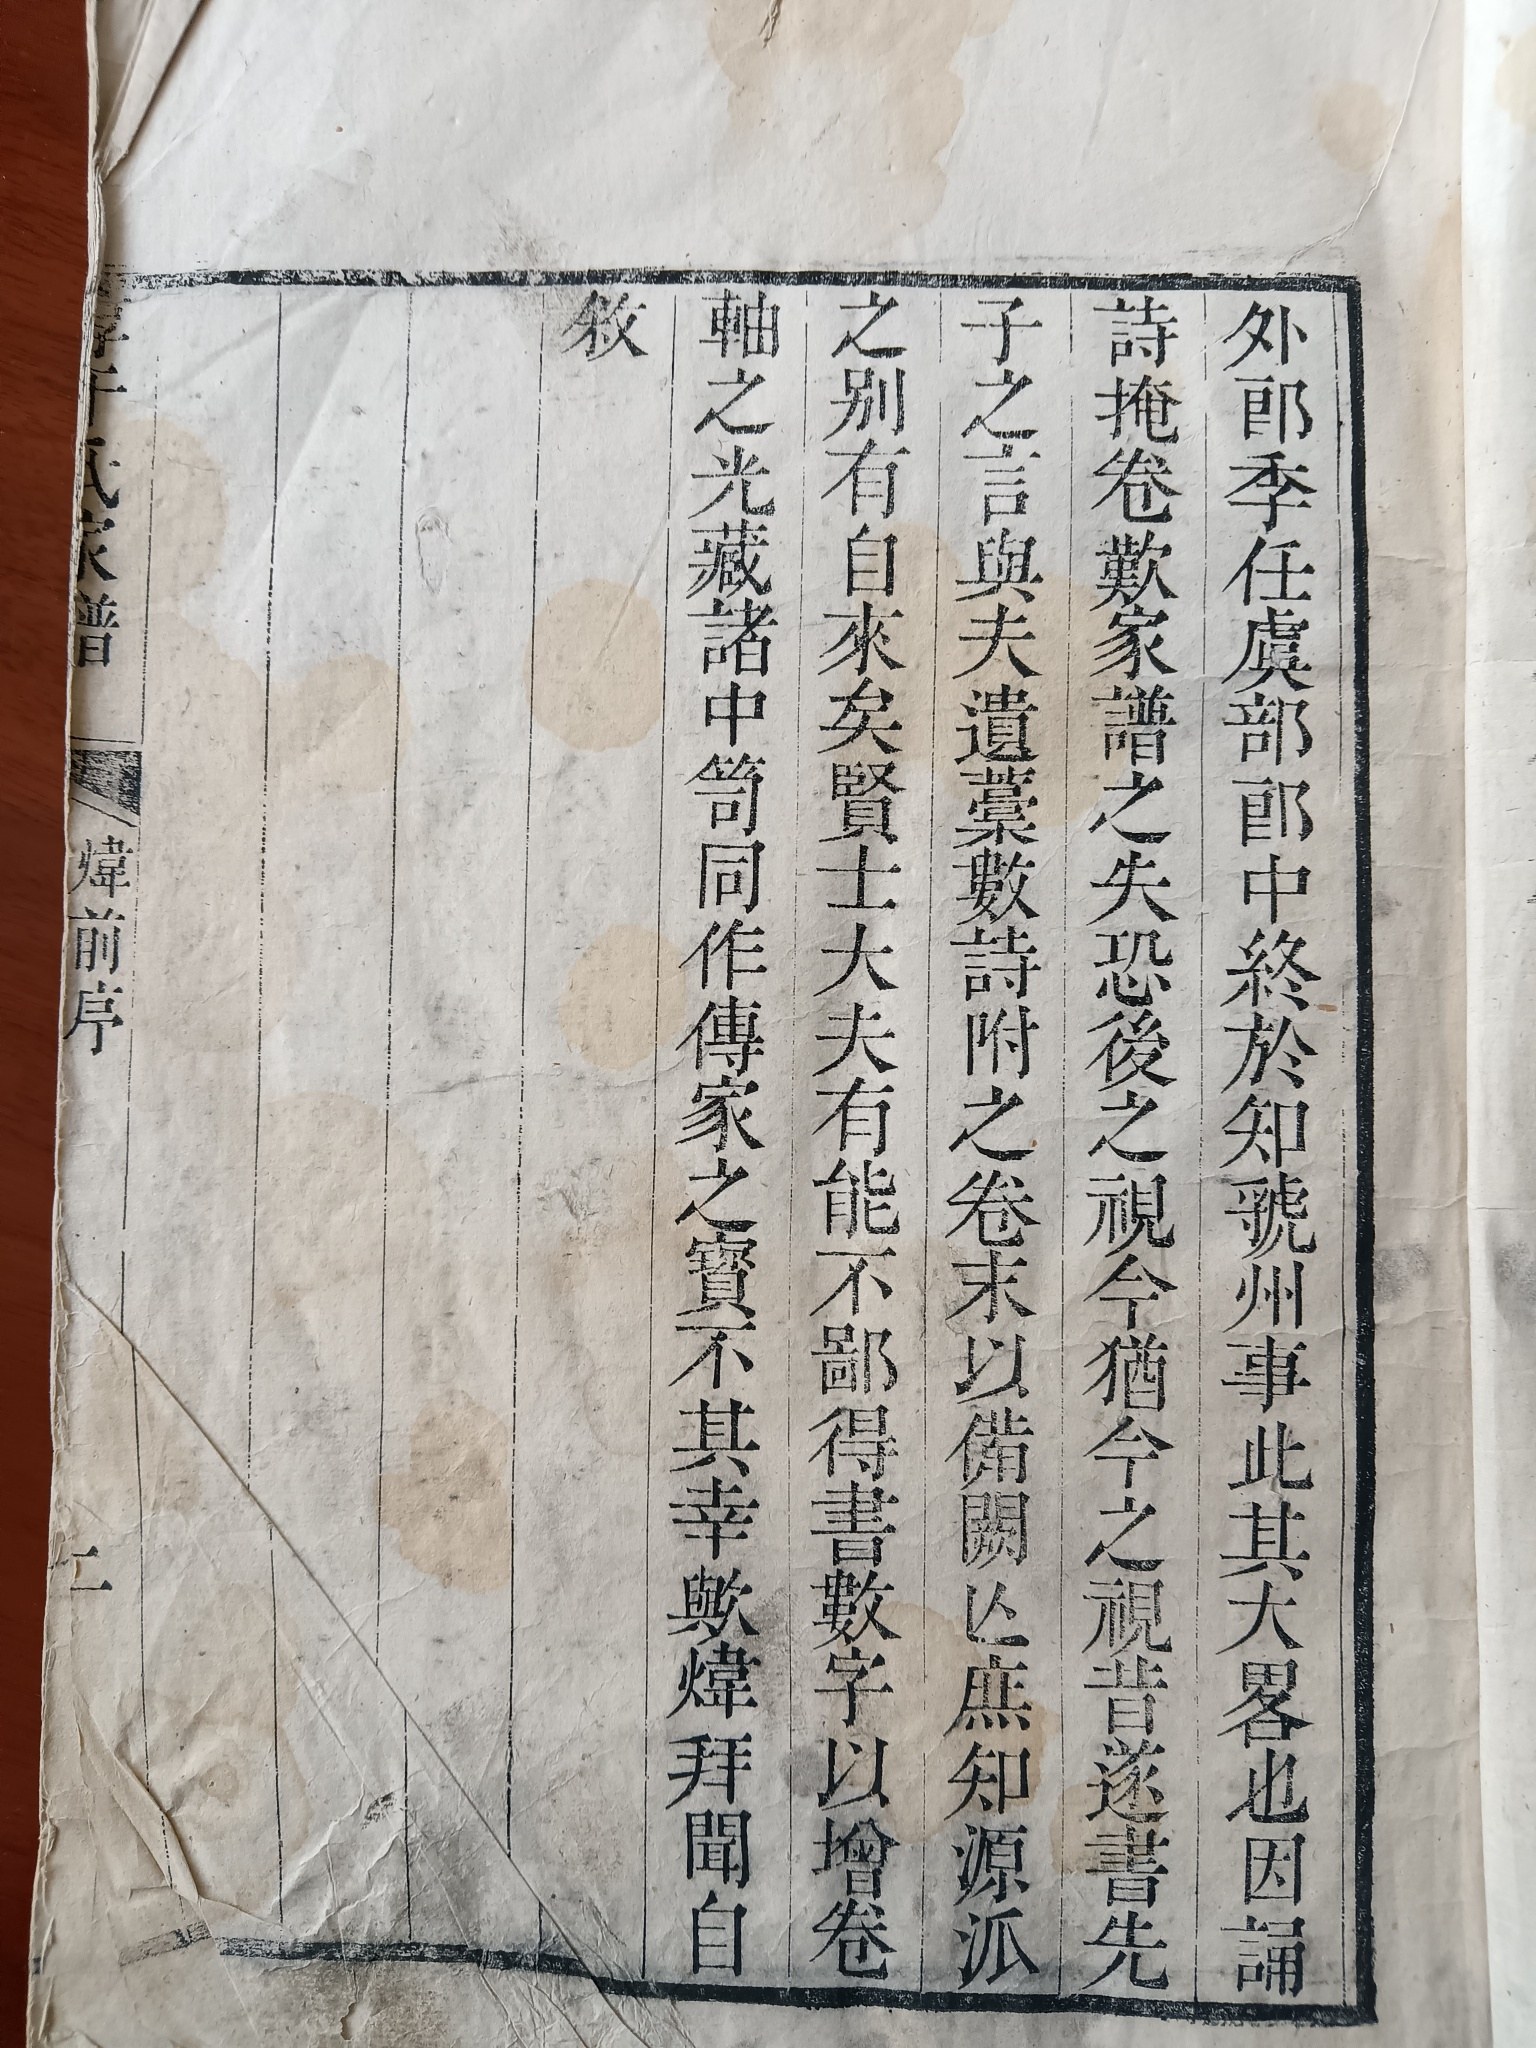 外郎季任虞部郎中終於知虢州事此其大畧也因誦
詩掩卷歎家譜之失恐後之視今猶今之視昔遂書先
子之言與夫遺藁數詩附之卷末以備闕亾庶知源派
之别有自來矣賢士大夫有能不鄙得書數字以增卷
軸之光藏諸中笥同作傳家之寳不其幸歟煒拜聞自
敘
氏家譜
煒前序
二